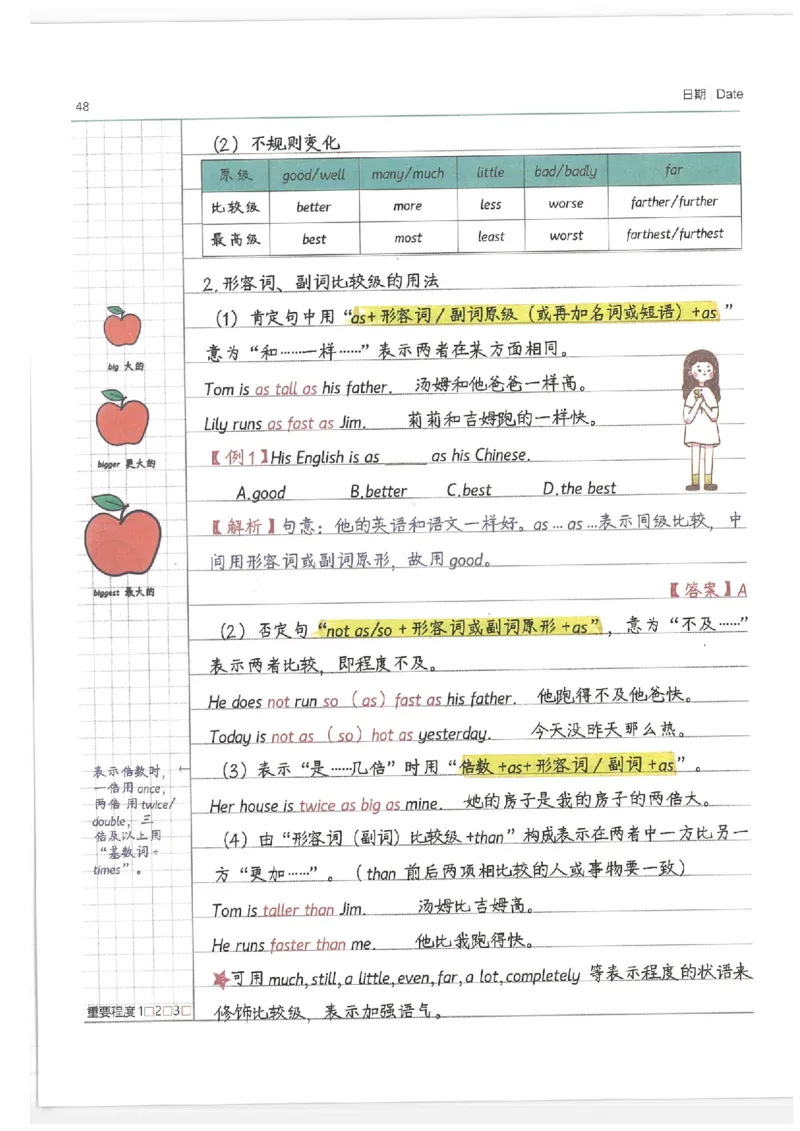 48
日期 Date
(2) 不规则变化
原级 good/well many/much little bad/badly far
比较级 better more less worse farther/further
最高级 best most least worst farthest/furthest
2.形容词、副词比较级的用法
(1) 肯定句中用“as+形容词/副词原级(或再加名词或短语)+as ”
意为“和……一样……”表示两者在某方面相同。
Tom is as tall as his father. 汤姆和他爸爸一样高。
Lily runs as fast as Jim. 莉莉和吉姆跑的一样快。
【例1】His English is as ______ as his Chinese.
A.good B.better C.best D.the best
【解析】句意:他的英语和语文一样好。as … as …表示同级比较,中
间用形容词或副词原形,故用good。
【答案】A
(2) 否定句“not as/so +形容词或副词原形+as”,意为“不及……”
表示两者比较,即程度不及。
He does not run so (as) fast as his father. 他跑得不及他爸快。
Today is not as (so) hot as yesterday. 今天没昨天那么热。
(3) 表示“是……几倍”时用“倍数+as+形容词/副词+as”。
Her house is twice as big as mine. 她的房子是我的房子的两倍大。
(4) 由“形容词(副词)比较级+than”构成表示在两者中一方比另一
方“更加……”。(than 前后两项相比较的人或事物要一致)
Tom is taller than Jim. 汤姆比吉姆高。
He runs faster than me. 他比我跑得快。
★可用much,still,a little,even,far,a lot,completely 等表示程度的状语来
修饰比较级,表示加强语气。
big 大的
bigger 更大的
biggest 最大的
表示倍数时, ←
一倍用once,
两倍用twice/
double, 三
倍及以上用
“基数词+
times”。
重要程度1□2□3□